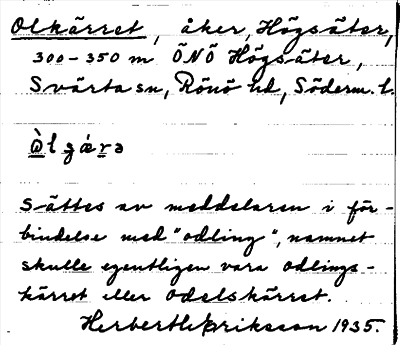 Olkärret, åker, Högsäter,
300-350 m ÖNÖ Högsäter,
Svärta sn, Rönö hd, Söderm. l.
Sättes av meddelaren i för-
bindelse med "odling", namnet
skulle egentligen vara odlings-
kärret eller odelskärret.
Herbert Eriksson 1935.